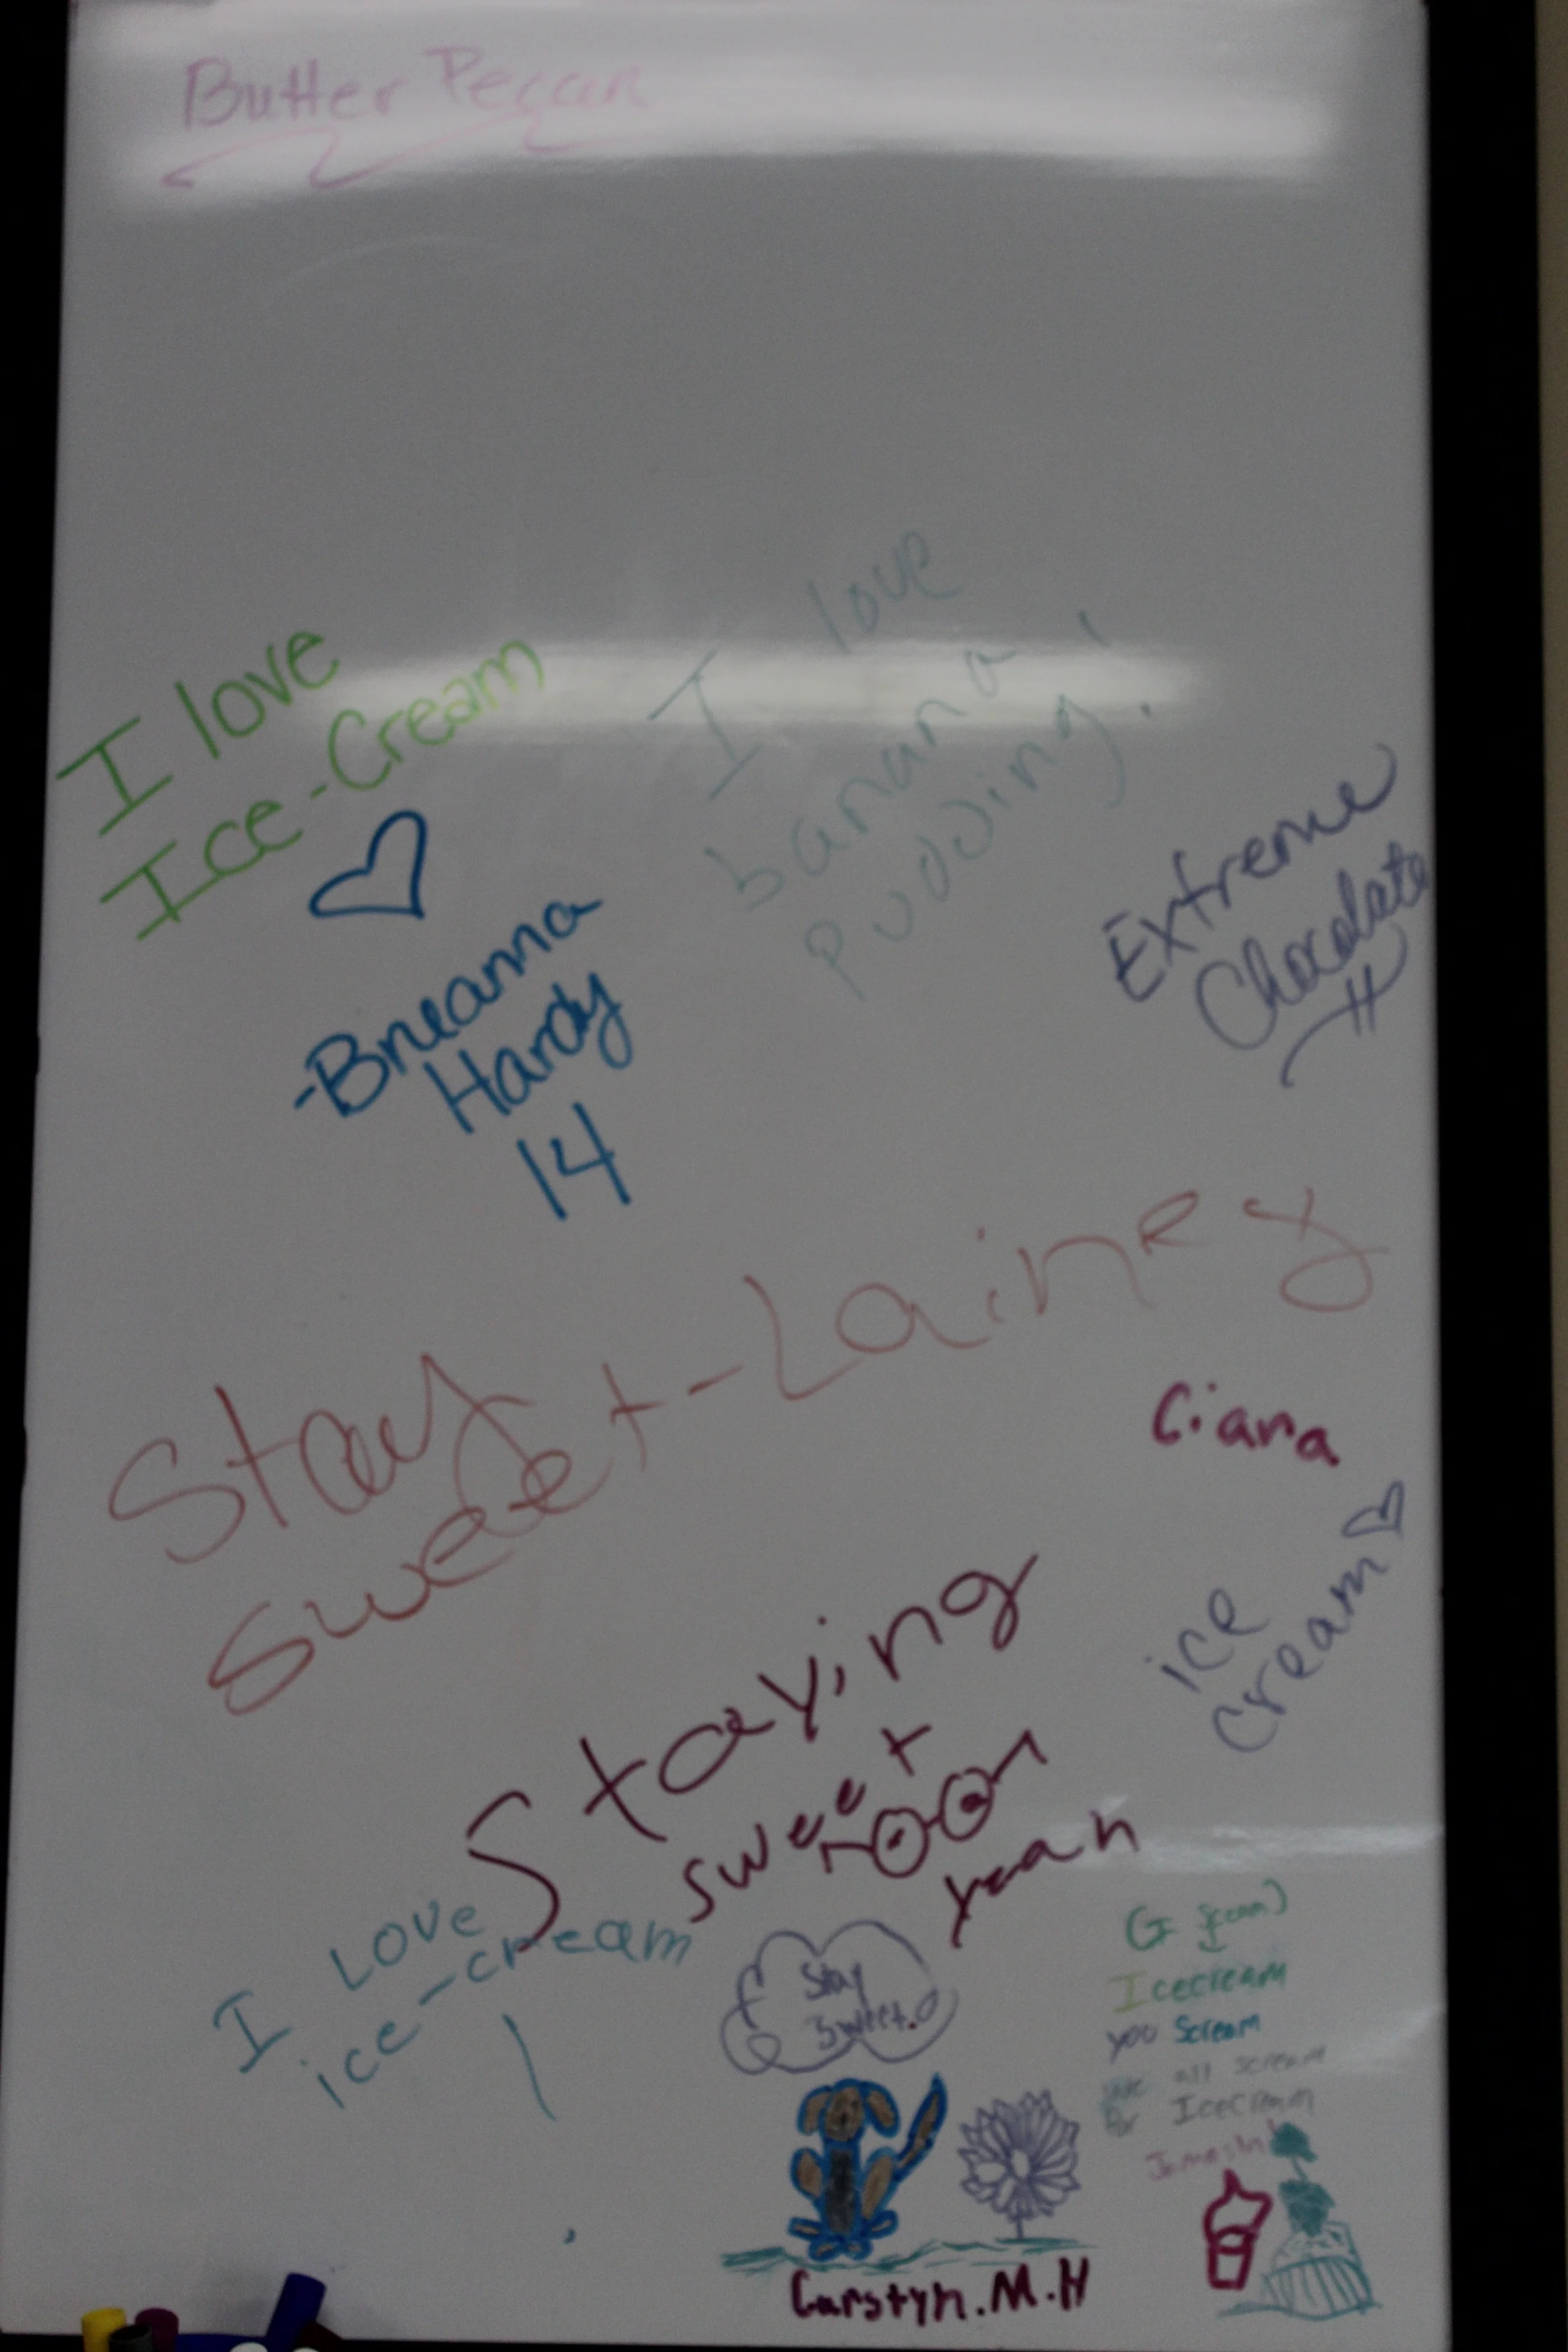 Butter Pecan
I love
Ice-Cream
I love
banana
pudding!
Extreme
Chocolate
-Breanna
Hardy
14
Stay
sweet-Lainey
Ciana
ice
cream
Staying
sweet
yeah
I LOVE
ice-cream
Stay
Sweet.
Icecream
you Scream
we all scream
for Icecream
Carstyn.M.H